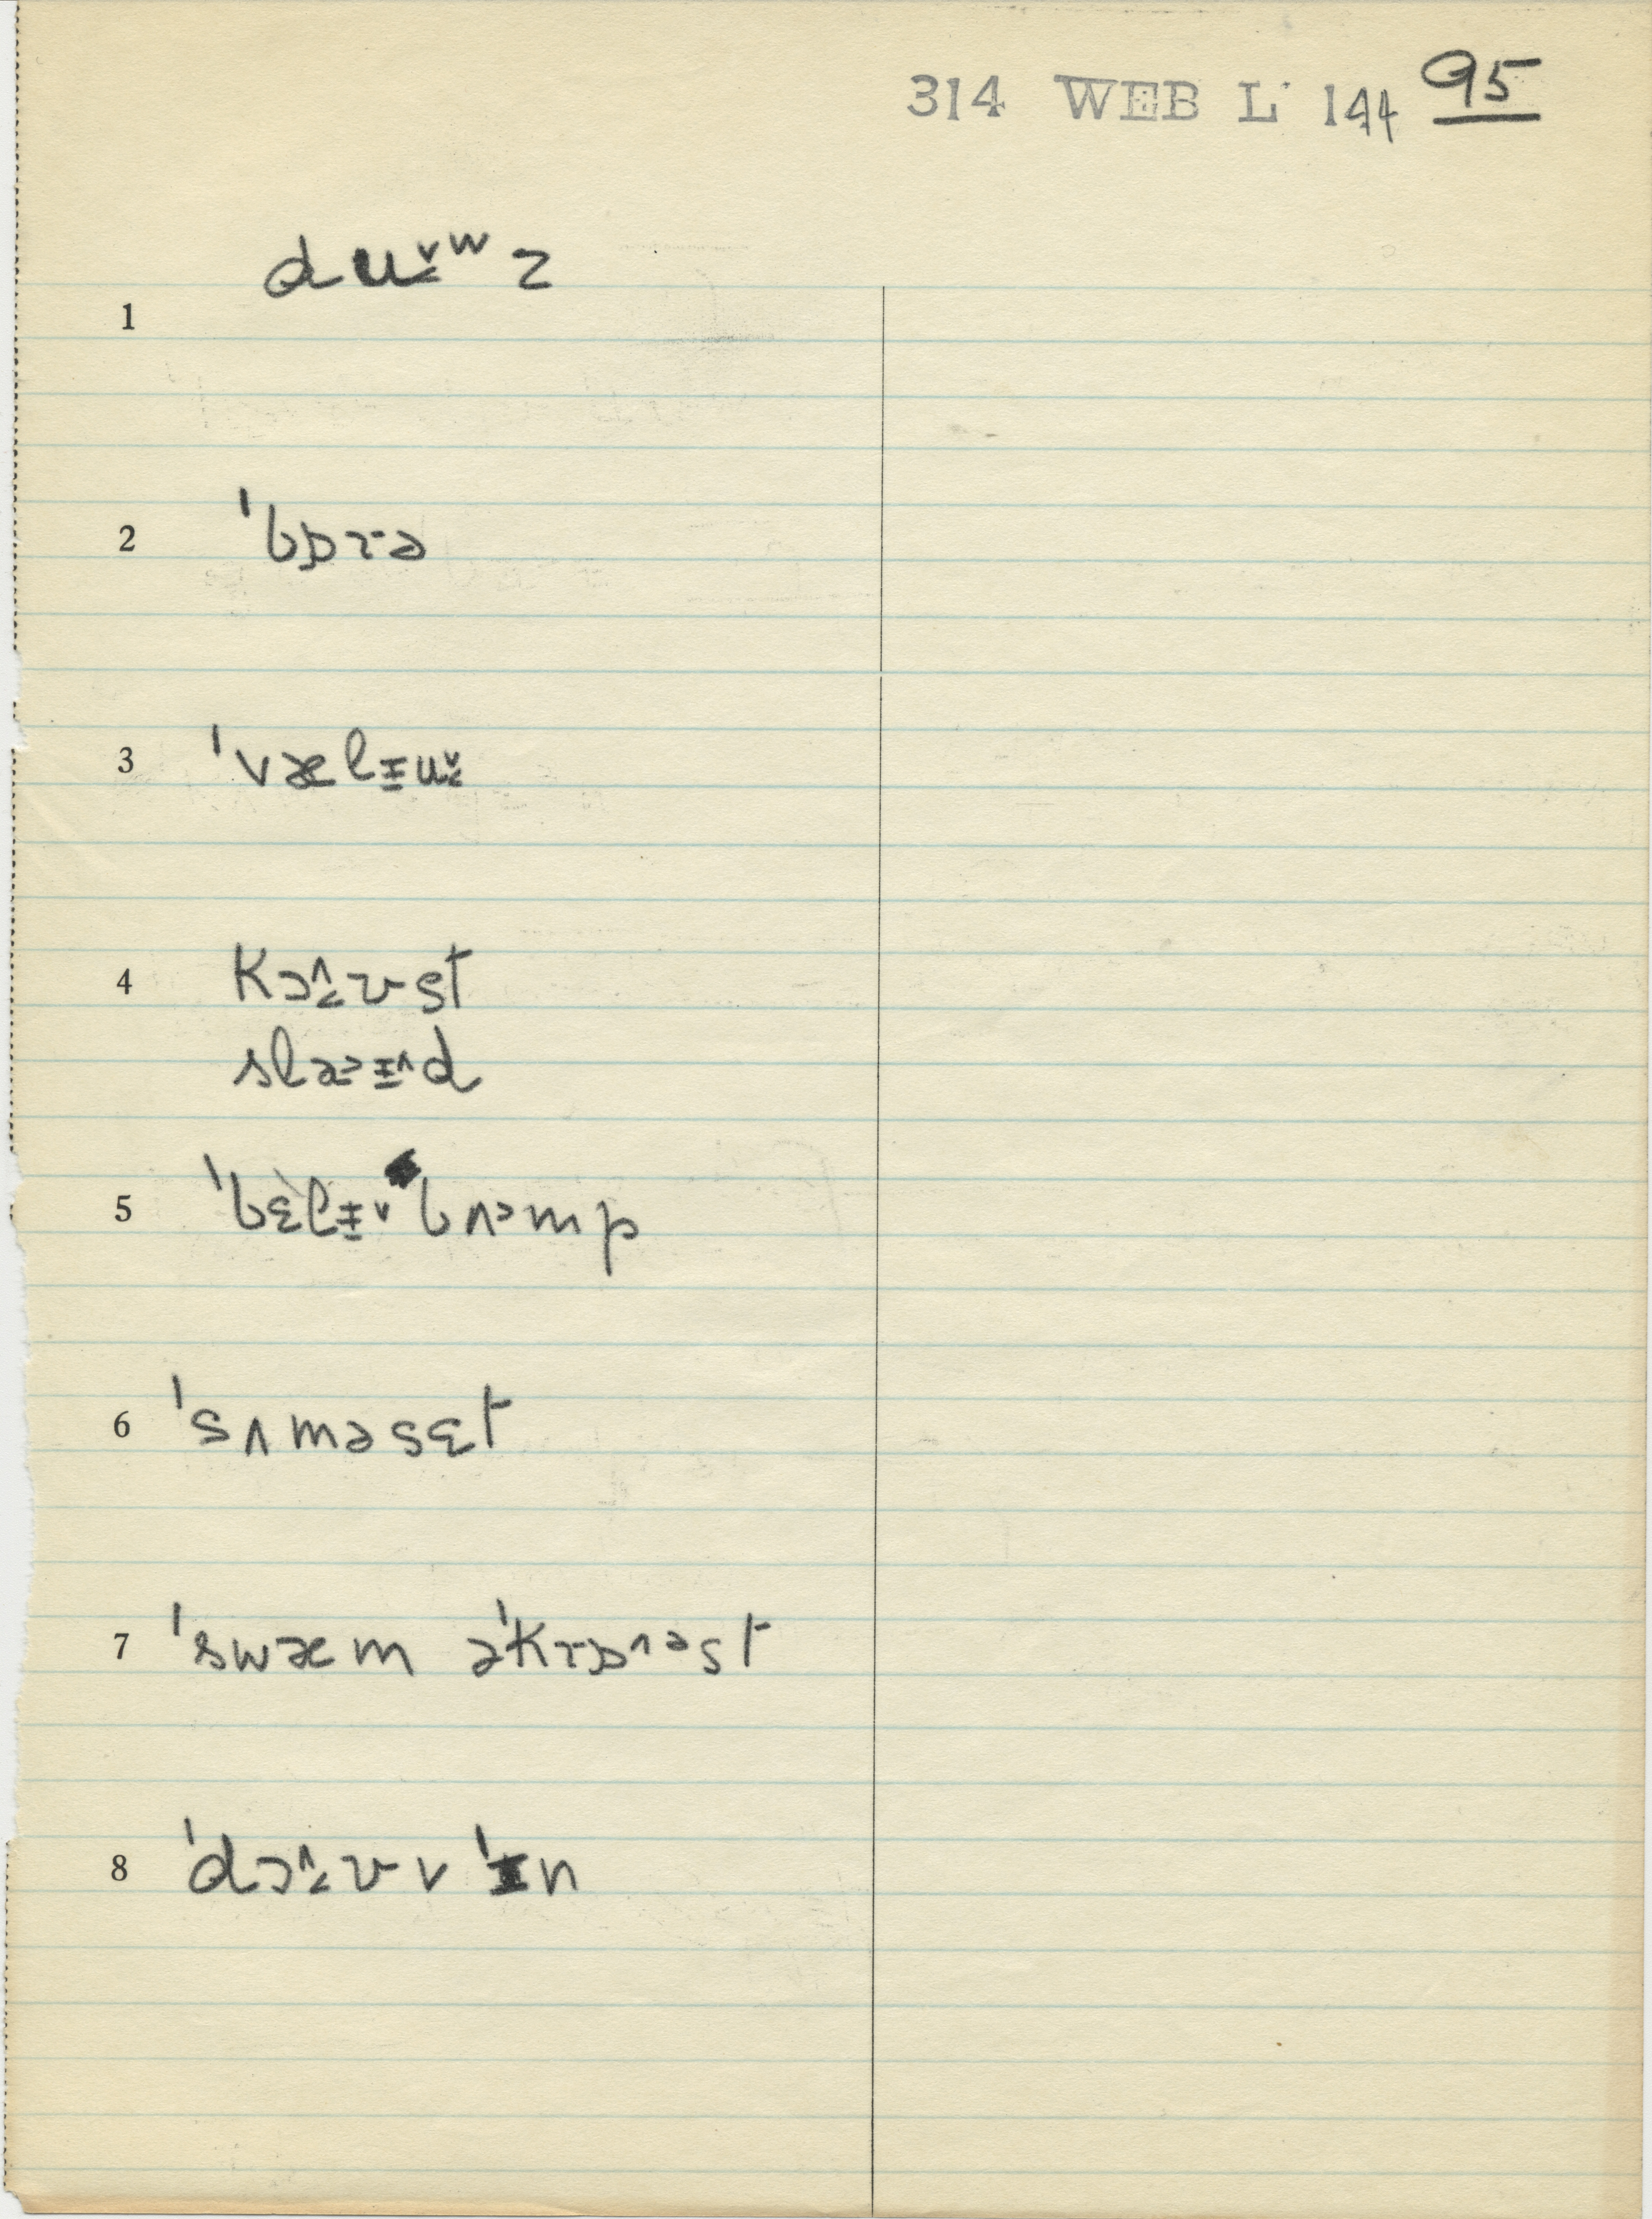 314 WEB L 144 95
1 du̬˂ʷz
2 ˈbɒrə
3 ˈvælɨu̬˂
4 kɔ˄˂ʊst
slaɨ˄d
5 ˈbɛlɨ˅bʌ˃mp
6 ˈsʌməsɛt
7 ˈswæm əˈkrɒ˄ᵊst
8 ˈdɔ˄˂ʊv ˈɨn